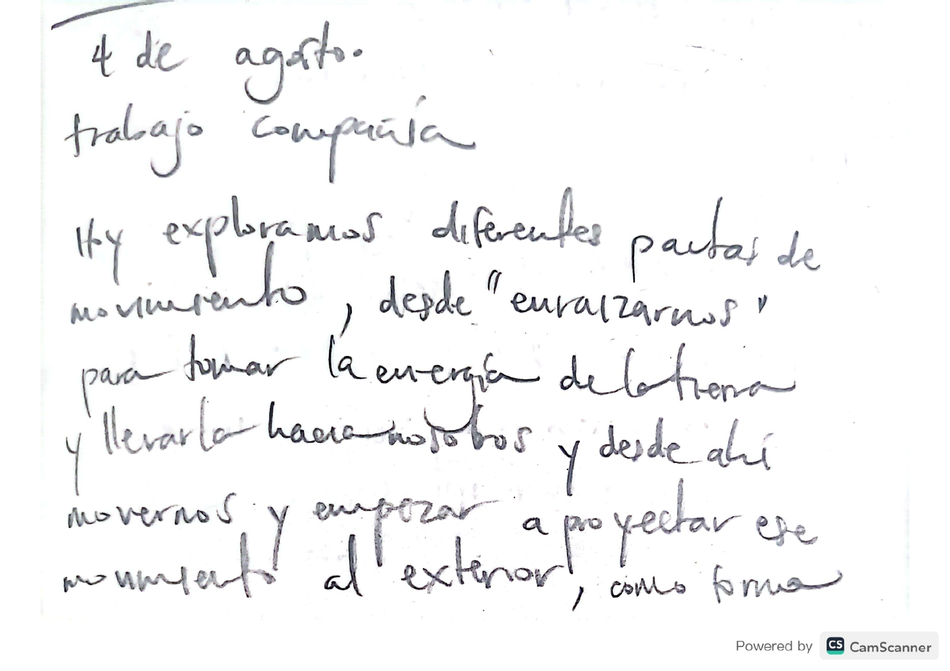 4 de agosto.
trabajo compañía
Hoy exploramos diferentes pautas de
movimiento, desde "enraizarnos"
para tomar la energía de la tierra
y llevarla hacia nosotros y desde ahí
movernos y empezar a proyectar ese
movimiento al exterior, como forma
Powered by CS CamScanner